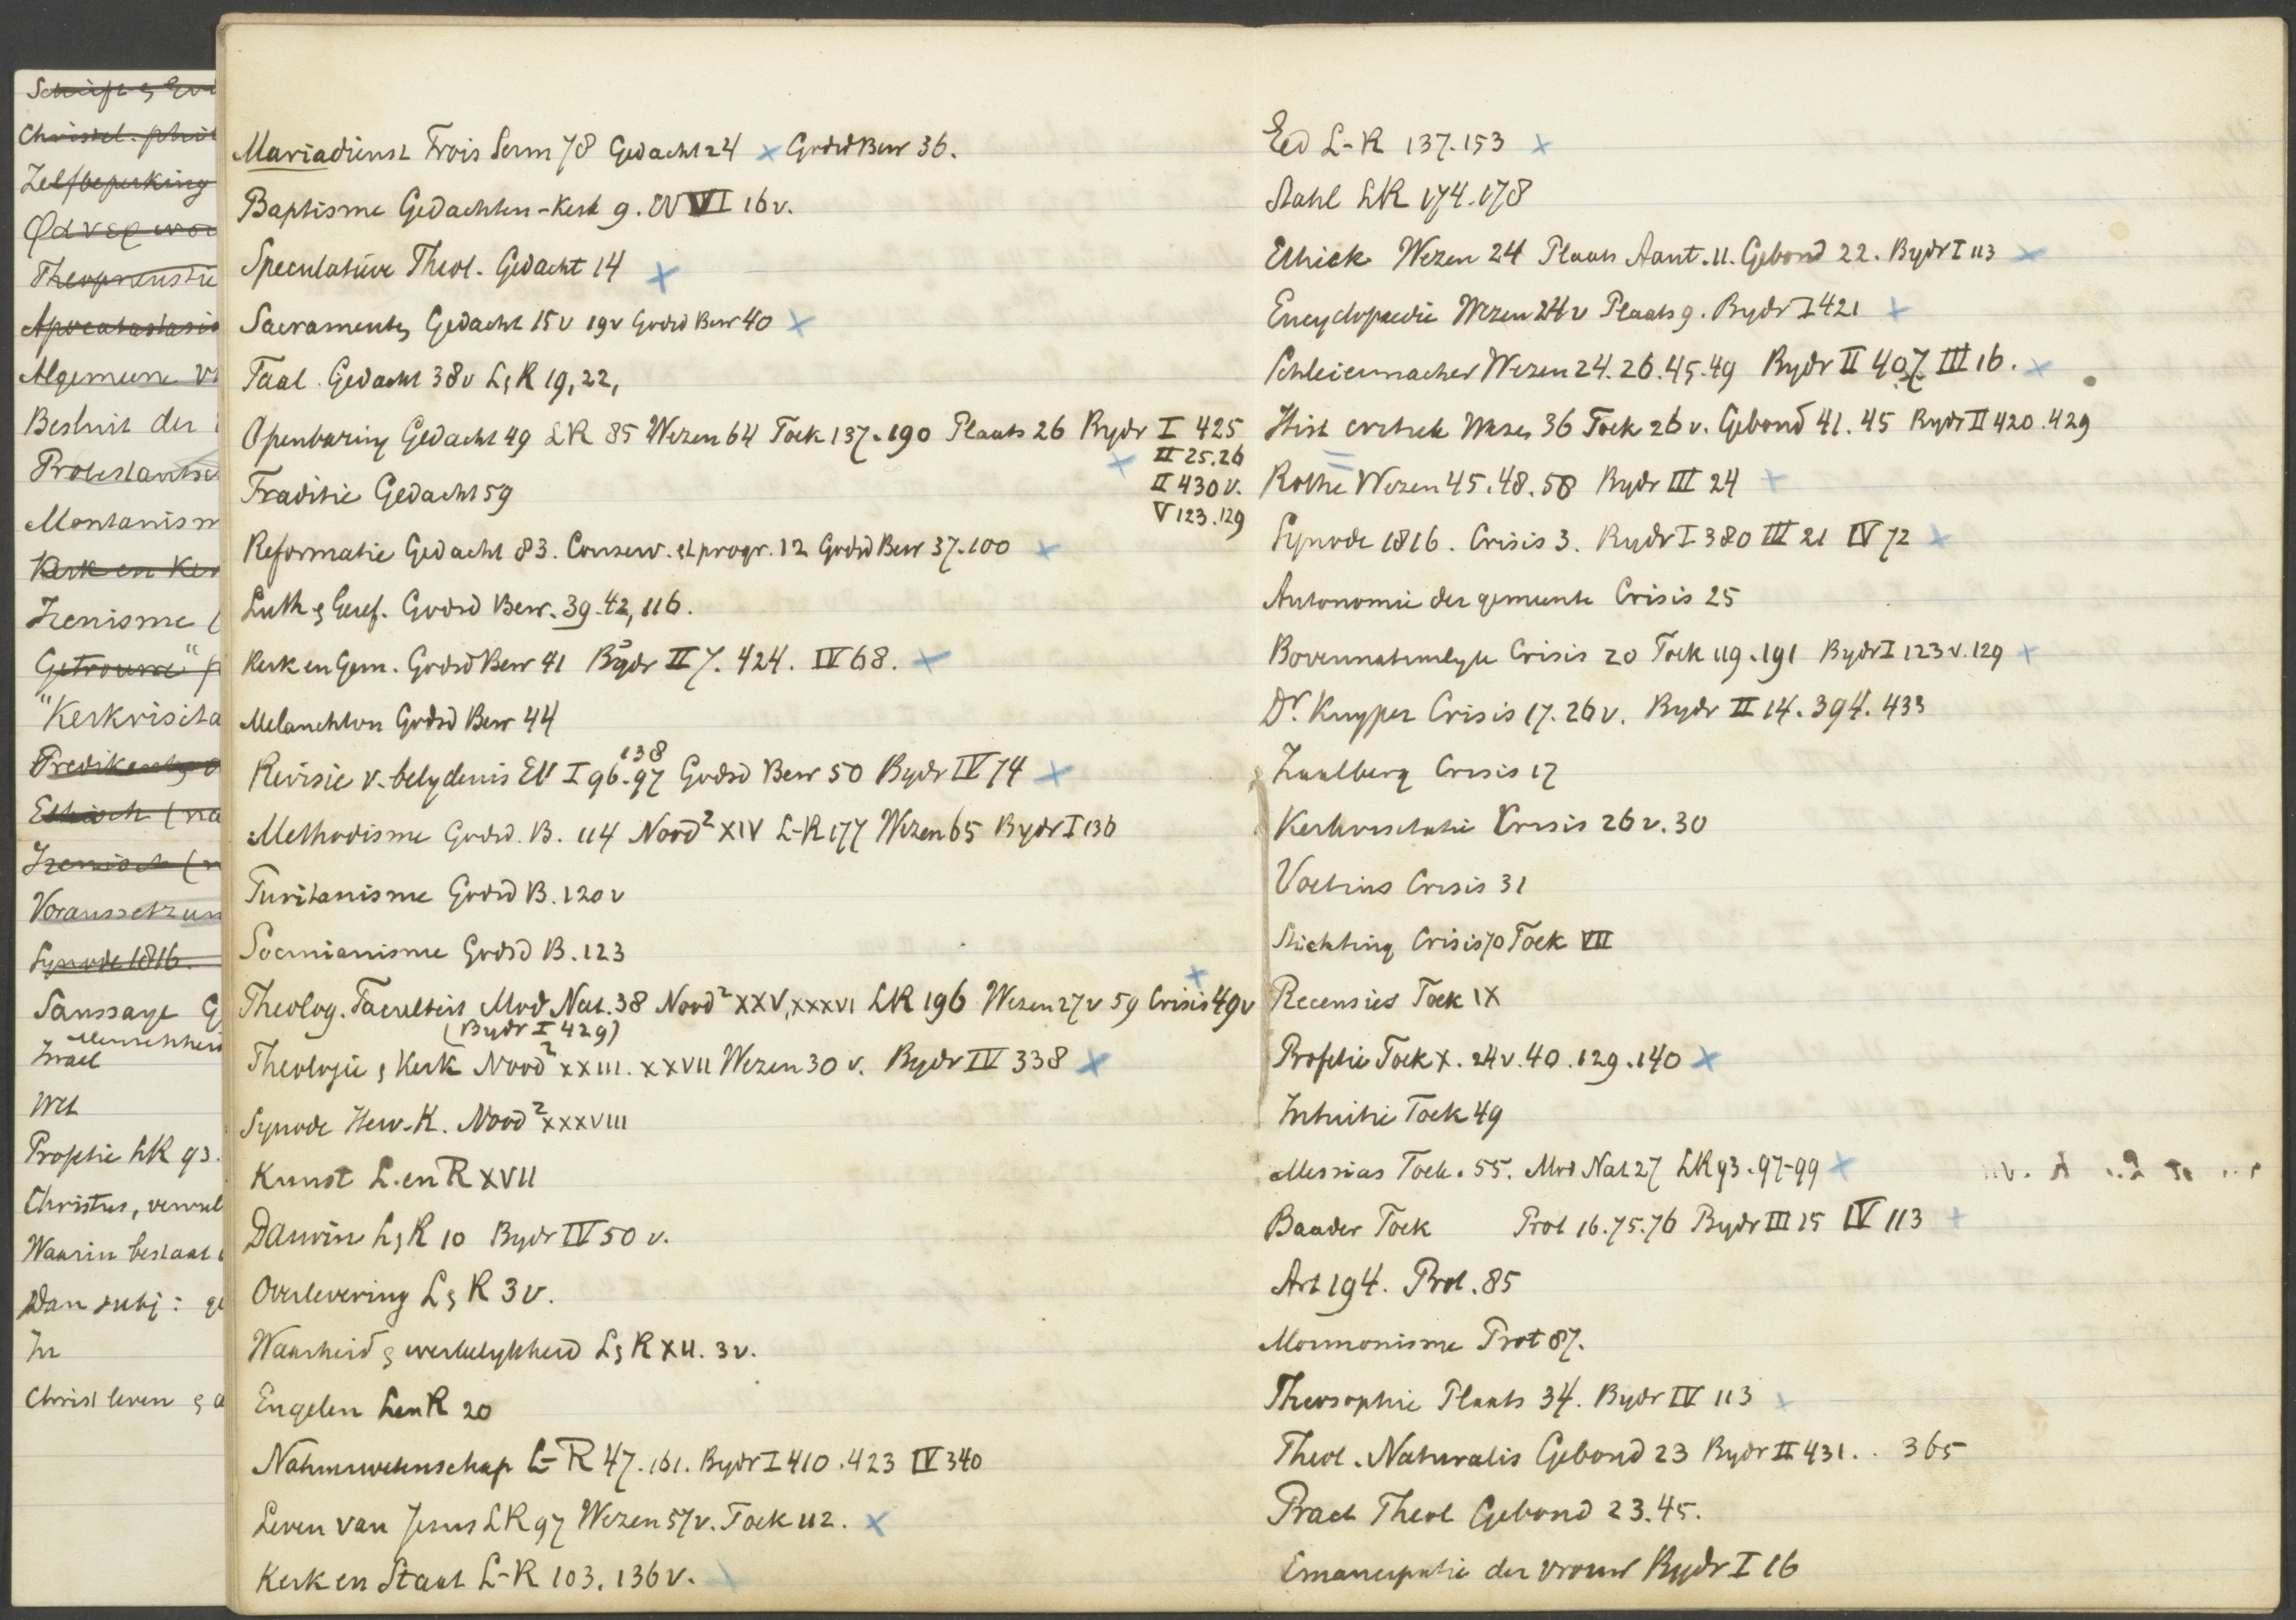 Schrift &
Christel. phil
Zelfbeperking
Theopneustie
Apocatastasis
Algemeene
Besluit der
Protestantsch
Montanism
Kerk en Ker
Irenisme (
Getrouwe"
"Kerkvisita
Predikant
Ethisch (na
Irenisch (
Voraussetzun
Synode 1816.
Saussaye G
Menschheid
Israel
Wet
Profetie LR 93.
Christus, vervul
Waarin bestaat
Dan subj:
In
Christ leven &
Mariadienst Trois Serm 78 Gedacht 24 x Godsd Bew 36.
Baptisme Gedachten-Kerk 9. EV VI 16v.
Speculatieve Theol. Gedacht 14 x
Sacrament Gedacht 15v 19v Godsd Bew 40 x
Taal. Gedacht 38v L&R 19, 22,
Openbaring Gedacht 49 LR 85 Wezen 64 Toek 137.190 Plaats 26 Bydr I 425
x II 25.26
Traditie Gedacht 59 II 430v.
V 123.129
Reformatie Gedacht 83. Conserv. et progr. 12 Godsd Bew 37.100 x
Luth & Geref. Godsd Bew. 39.42, 116.
Kerk en Gem. Godsd Bew 41 Bydr II 7. 424. IV 68. x
Melanchton Godsd Bew 44
138
Revisie v. belydenis EV I 96.97 Godsd Bew 50 Bydr IV 74 x
Methodisme Godsd. B. 114 Nood² XIV L-R 177 Wezen 65 Bydr I 136
Puritanisme Godsd B. 120v
Socinianisme Godsd B. 123
Theolog. Faculteit Mod Nat. 38 Nood² XXV, XXXVI LR 196 Wezen 27v 59 Crisis 49v x
(Bydr I 429)
Theologie & Kerk Nood² XXIII. XXVII Wezen 30 v. Bydr IV 338 x
Synode Herv. K. Nood² XXXVIII
Kunst L. en R XVII
Darwin L&R 10 Bydr IV 50 v.
Overlevering L&R 3v.
Waarheid & werkelykheid L&R XII. 3v.
Engelen L en R 20
Natuurwetenschap L-R 47.161. Bydr I 410.423 IV 340
Leven van Jesus LR 97 Wezen 57v. Toek 112. x
Kerk en Staat L-R 103, 136v.
Eed L-R 137.153 x
Stahl LR 174.178
Ethiek Wezen 24 Plaats Aant. 11. Gebond 22. Bydr I 113 x
Encyclopaedie Wezen 24v Plaats 9. Bydr I 421 x
Schleiermacher Wezen 24.26.45.49 Bydr II 407 III 16. x
Hist critiek Wezen 36 Toek 26v. Gebond 41.45 Bydr II 420.429
Rothe Wezen 45.48.58 Bydr III 24 x
Synode 1816. Crisis 3. Bydr I 380 III 21 IV 72 x
Autonomie der gemeente Crisis 25
Bovennatuurlyke Crisis 20 Toek 119.191 Bydr I 123v.129 x
Dr. Kuyper Crisis 17.26v. Bydr II 14.394.433
Zaalberg Crisis 17
Kerkvisitatie Crisis 26v.30
Voetius Crisis 31
Stichting Crisis 70 Toek VII
Recensies Toek IX
Profetie Toek X. 24v.40.129.140 x
Intuitie Toek 49
Messias Toek. 55. Mod Nat 27 LR 93.97-99 x
Baader Toek Prot 16.75.76 Bydr III 25 IV 113 x
Art 194. Prot. 85
Mormonisme Prot 87.
Theosophie Plaats 34. Bydr IV 113 x
Theol. Naturalis Gebond 23 Bydr II 431. . 365
Pract Theol Gebond 23.45.
Emancipatie der vrouw Bydr I 16